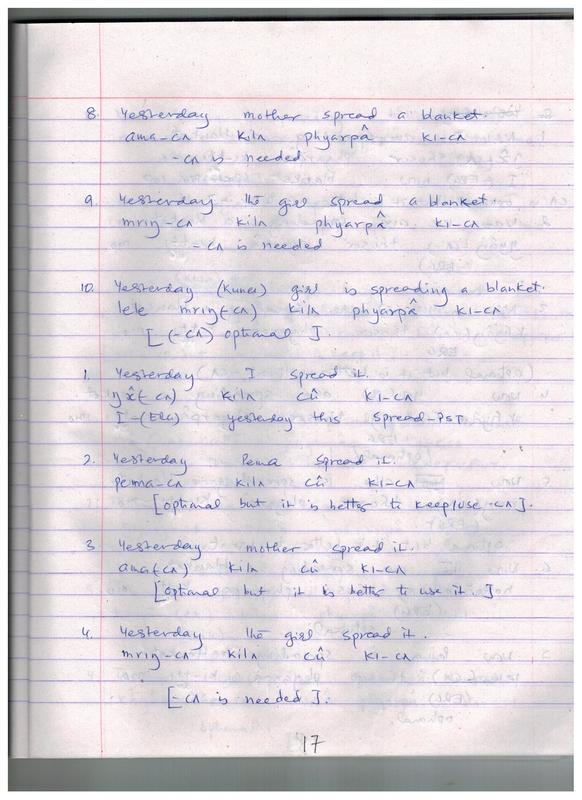 8. Yesterday mother spread a blanket.
ama-cʌ kilʌ phyarpʌ̂ kı-cʌ
-cʌ is needed
9. Yesterday the girl spread a blanket.
mrıŋ-cʌ kilʌ phyarpʌ̂ kı-cʌ
-cʌ is needed
10. Yesterday (Kunes) girl is spreading a blanket.
lele mrıŋ(-cʌ) kilʌ phyarpʌ̂ kı-cʌ
[(-cʌ) optional].
1. Yesterday I spread it.
(-cʌ) kilʌ cû kı-cʌ
I-(ERG) yesterday this spread-PST
2. Yesterday Pema spread it.
pema-cʌ kilʌ cû kı-cʌ
[optional but it is better to keep/use -cʌ].
3. Yesterday mother spread it.
ama(-cʌ) kilʌ cû kı-cʌ
[optional but it is better to use it.]
4. Yesterday the girl spread it.
mrıŋ-cʌ kilʌ cû kı-cʌ
[-cʌ is needed].
17